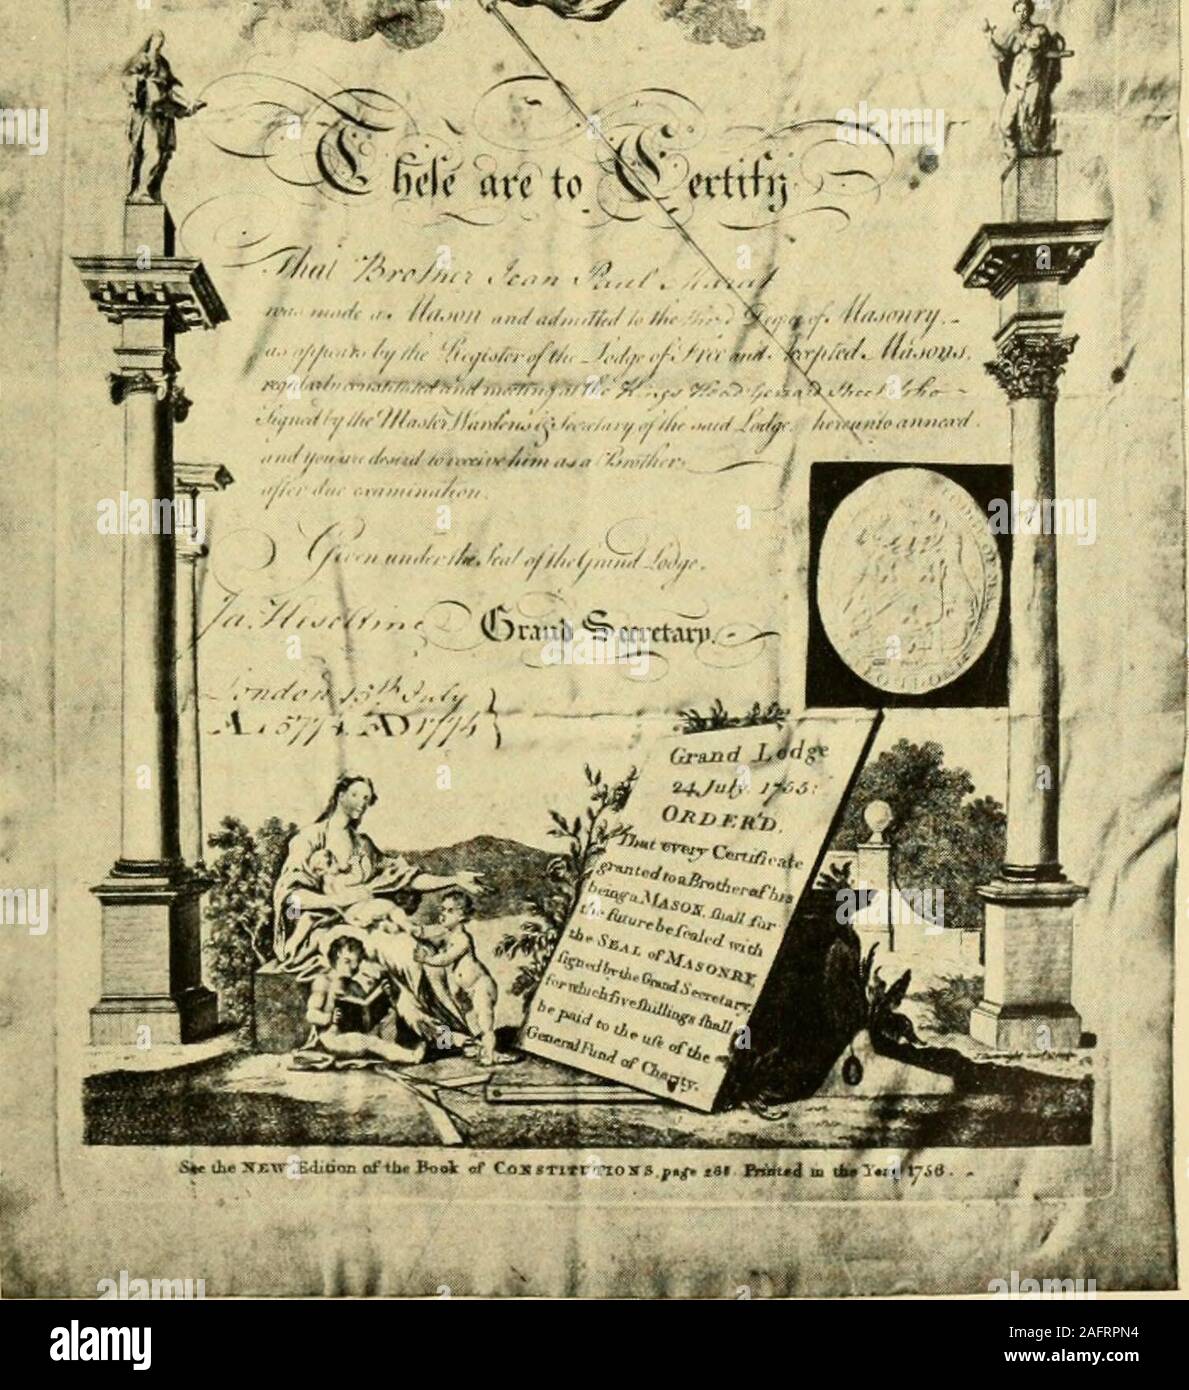 These are to Certify
That Brother Jean Paul Marat
was made a Mason and admitted to the Third Degree of Masonry.
as appears by the Register of the Lodge of Free and Accepted Masons.
regularly constituted and meeting at the Kings Head Gerrard Street Soho
Signed by the Master Wardens & Secretary of the said Lodge hereunto annexed.
and you are desired to receive him as a Brother
after due examination.
Given under the Seal of the Grand Lodge.
Ja. Heseltine Grand Secretary.
London 15th July
AL 5774. AD 1774
LONDON
Grand Lodge
24 July. 1755:
ORDER'D,
That every Certificate
granted to a Brother of his
being a MASON, ſhall for
the future be ſealed with
the SEAL of MASONRY,
ſigned by the Grand Secretary,
for which five ſhillings ſhall
be paid to the uſe of the
General Fund of Charity.
See the NEW Edition of the Book of CONSTITUTIONS, page Printed in the Year 1756.
alamy
Image ID: 2AFRPN4
www.alamy.com